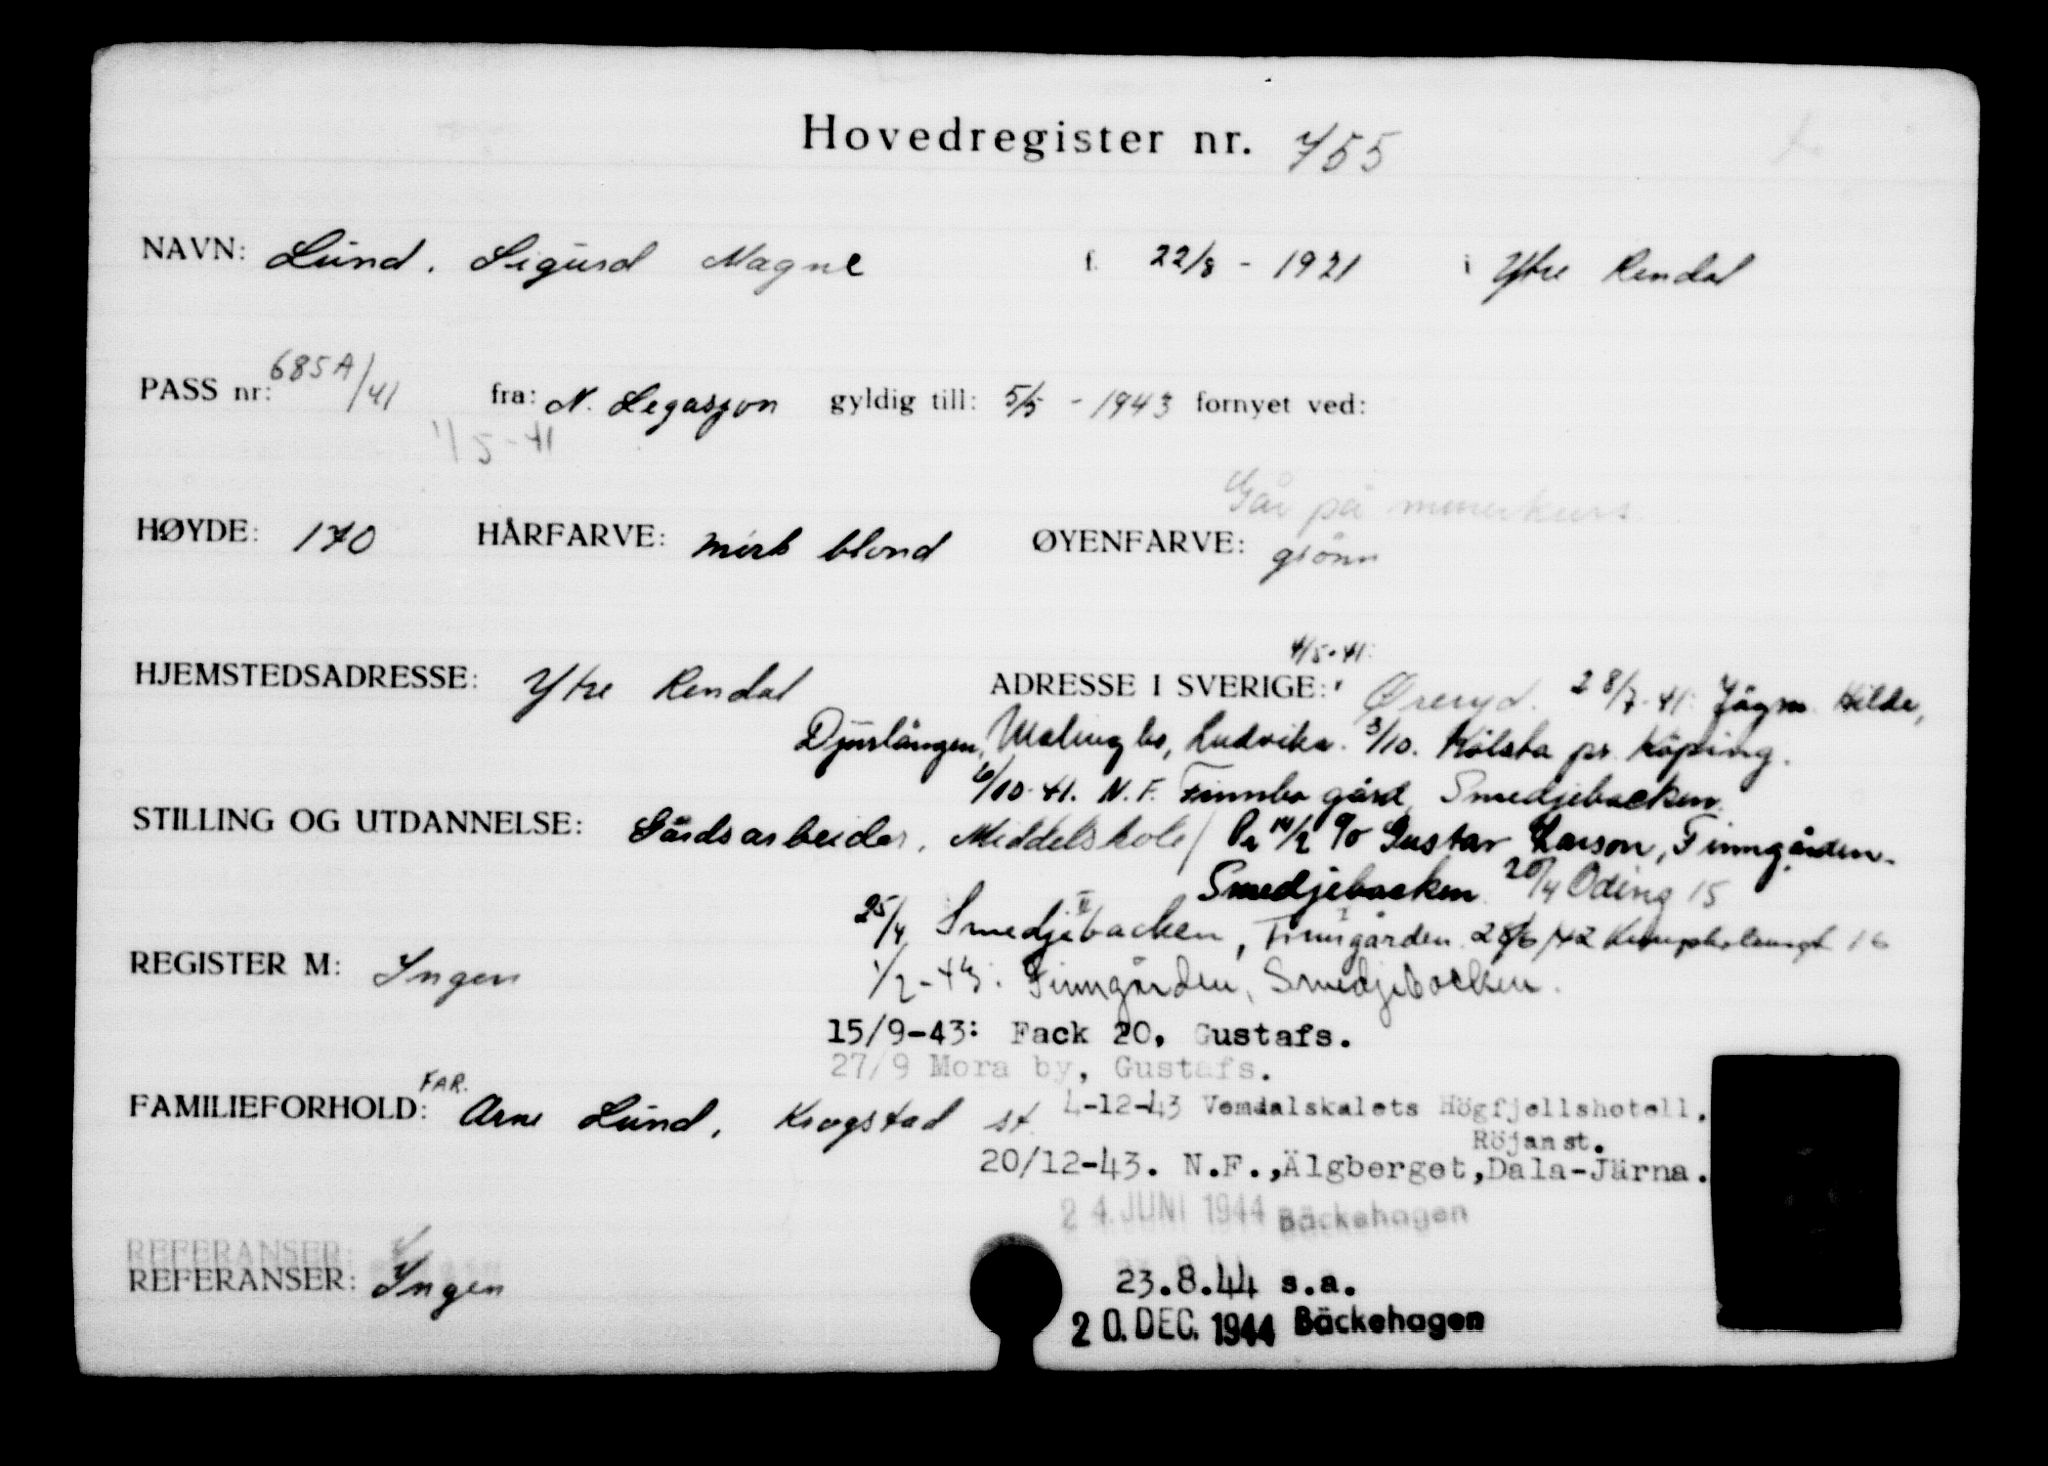 Hovedregister nr. 755
NAVN: Lund, Sigurd Magne f. 22/8 - 1921 i Ytre Rendal
PASS nr: 685A/41 fra: N. Legasjon gyldig till: 5/5 - 1943 fornyet ved:
1/5-41
Går på
HØYDE: 170 HÅRFARVE: mörk blond ØYENFARVE: grönn
4/5-41:
HJEMSTEDSADRESSE: Ytre Rendal ADRESSE I SVERIGE: Øreryd. 28/7-41: Jägm. Hilde,
Djurlången, Malingbo, Ludvika. 3/10. Kölsta pr. Köping.
6/10-41. N.F. Finnbo gård, Smedjebacken.
STILLING OG UTDANNELSE: Gårdsarbeider, Middelskole / Pr 14/2 c/o Gustav Larson, Finngården
Smedjebacken. 20/4 Öding 15
25/4 Smedjebacken II, Finngården I 28/6/42 16
REGISTER M: Ingen
1/2-43: Finngården, Smedjebacken.
15/9-43: Fack 20, Gustafs.
27/9 Mora by, Gustafs.
FAMILIEFORHOLD: FAR. Arne Lund, Krogstad st.
4-12-43 Vemdalskalets Högfjellshotell,
Röjan st.
20/12-43. N.F.,Älgberget,Dala-Järna.
24. JUNI 1944 Bäckehagen
REFERANSER:
REFERANSER: Ingen
23.8.44 s.a.
20. DEC. 1944 Bäckehagen